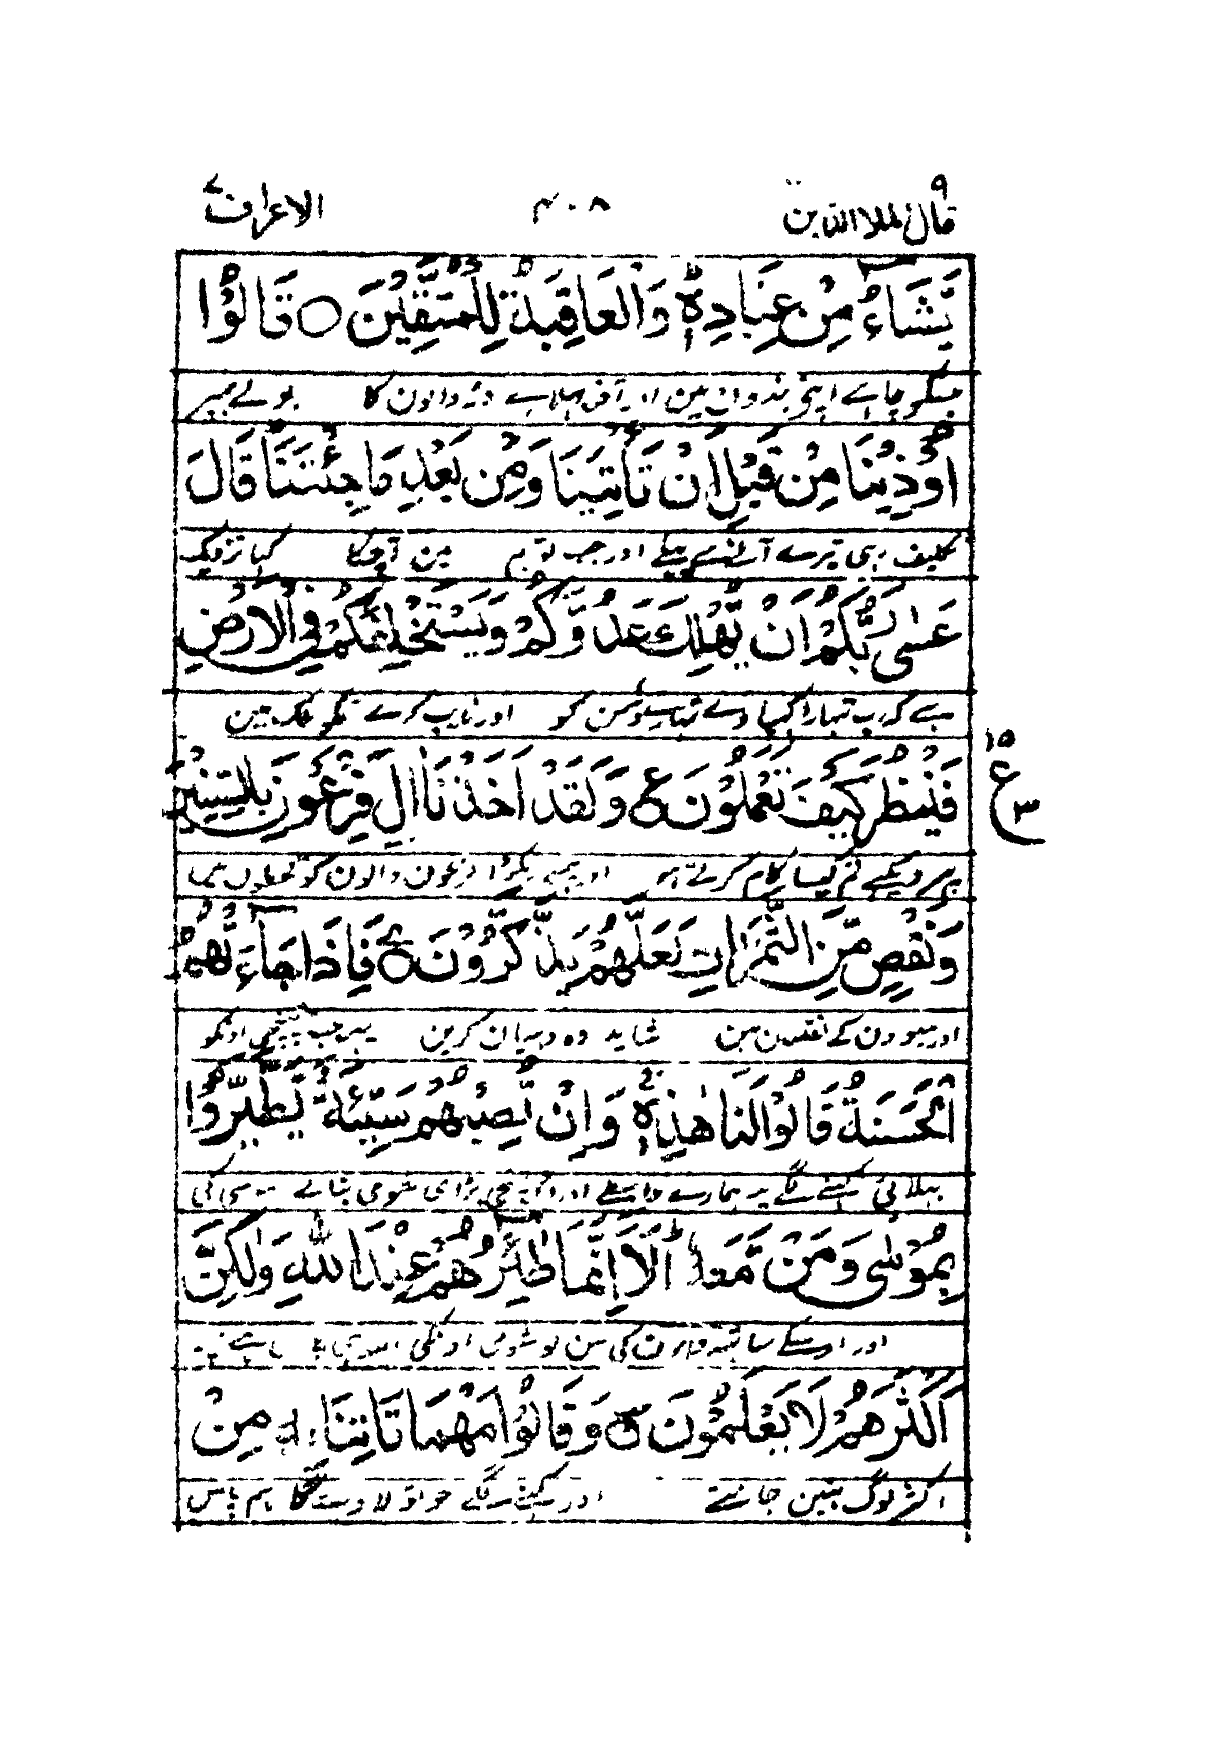 قال الملا الذين ٩ ۴۰۸ الاعراف ٧
يَّشَاءُ مِنْ عِبَادِهٖ ؕ وَالْعَاقِبَةُ لِلْمُتَّقِيْنَ ○ قَالُوْا
جسکو چاہے اپنے بندون مین اور آخر بہلا ہے ڈر والون کا بولے ہمپر
اُوْذِيْنَا مِنْ قَبْلِ اَنْ تَأْتِيَنَا وَمِنْ بَعْدِ مَا جِئْتَنَا ؕ قَالَ
تکلیف رہی تیرے آنے سے پہلے اور جب تو ہم مین آچکا کہا نزدیک
عَسٰى رَبُّكُمْ اَنْ يُّهْلِكَ عَدُوَّكُمْ وَيَسْتَخْلِفَكُمْ فِى الْاَرْضِ
ہے کہ رب تمہارا کہپا دے تمہارے دشمن کو اور نایب کرے تمکو ملک مین
فَيَنْظُرَ كَيْفَ تَعْمَلُوْنَ ع وَلَقَدْ اَخَذْنَا اٰلَ فِرْعَوْنَ بِالسِّنِيْنَ
١٥ ع ٣
پہر دیکہے تم کیسا کام کرتے ہو اور ہمنے پکڑا فرعون والون کو قحطون مین
وَنَقْصٍ مِّنَ الثَّمَرَاتِ لَعَلَّهُمْ يَذَّكَّرُوْنَ فَاِذَا جَاءَتْهُمُ
اور میوون کے نقصان مین شاید وہ دہیان کرین پہر جب پہنچی اونکو
الْحَسَنَةُ قَالُوْا لَنَا هٰذِهٖ وَاِنْ تُصِبْهُمْ سَيِّئَةٌ يَّطَّيَّرُوْا
بہلائی کہنے لگے یہ ہمارے واسطے اور اگر پہنچی برائی شومی بتاتے موسی کی
بِمُوْسٰى وَمَنْ مَّعَهٗ ؕ اَلَا اِنَّمَا طٰئِرُهُمْ عِنْدَ اللّٰهِ وَلٰكِنَّ
اور اوسکے ساتہہ والون کی سن لو شومی اونکی اللہ ہی پاس ہے
اَكْثَرَهُمْ لَا يَعْلَمُوْنَ وَقَالُوْا مَهْمَا تَأْتِنَا بِهٖ مِنْ
اکثر لوگ نہین جانتے اور کہنے لگے جو تو لاویگا ہم پاس